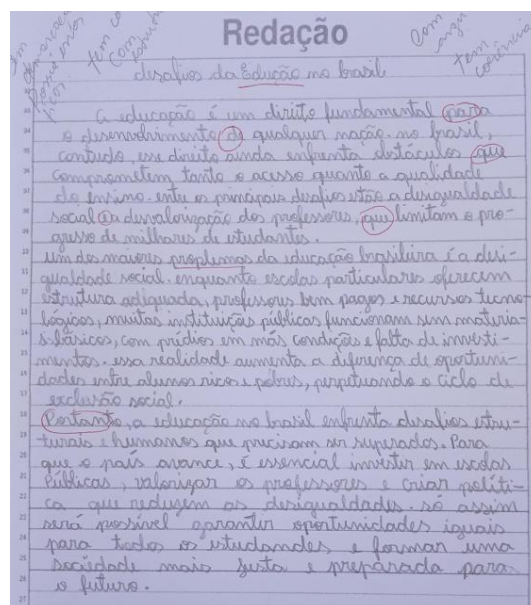 Redação
tem com
Com
tem coerência
desafios da Edução no brasil
a educação é um direito fundamental para
o desenvolvimento de qualquer nação. no brasil,
contudo, esse direito ainda enfrenta obstáculos que
comprometem tanto o acesso quanto a qualidade
do ensino. entre os principais desafios estão a desigualdade
social e a desvalorização dos professores, que limitam o pro-
gresso de milhares de estudantes.
um dos maiores proplemas da educação brasileira é a desi-
gualdade social. enquanto escolas particulares oferecem
estrutura adequada, professores bem pagos e recursos tecno-
lógicos, muitas instituições públicas funcionam sem materia-
s básicos, com prédios em más condições e falta de investi-
mentos. essa realidade aumenta a diferença de oportuni-
dades entre alunos ricos e pobres, perpetuando o ciclo de
exclusão social.
Portanto, a educação no brasil enfrenta desafios estru-
turais e humanos que precisam ser superados. Para
que o país avance, é essencial investir em escolas
Públicas, valorizar os professores e criar políti-
ca que reduzem as desigualdades. só assim
será possível garantir oportunidades iguais
para todos os estudandes e formar uma
sociedade mais justa e preparada para
o futuro.